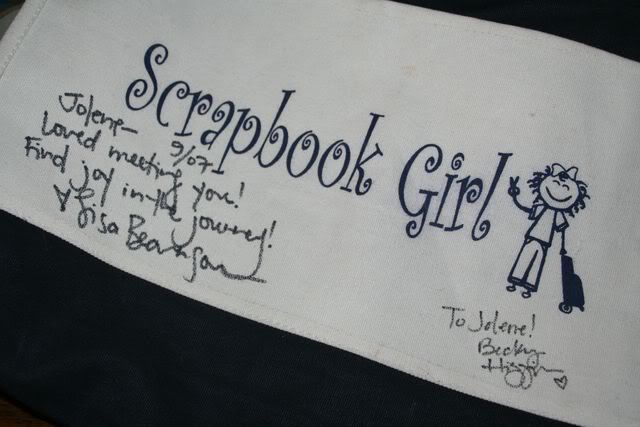 Scrapbook Girl
Jolene-
9/07
Loved meeting you!
Find joy in the journey!
♥ Lisa Bearnson
To Jolene!
Becky
Higgins ♡